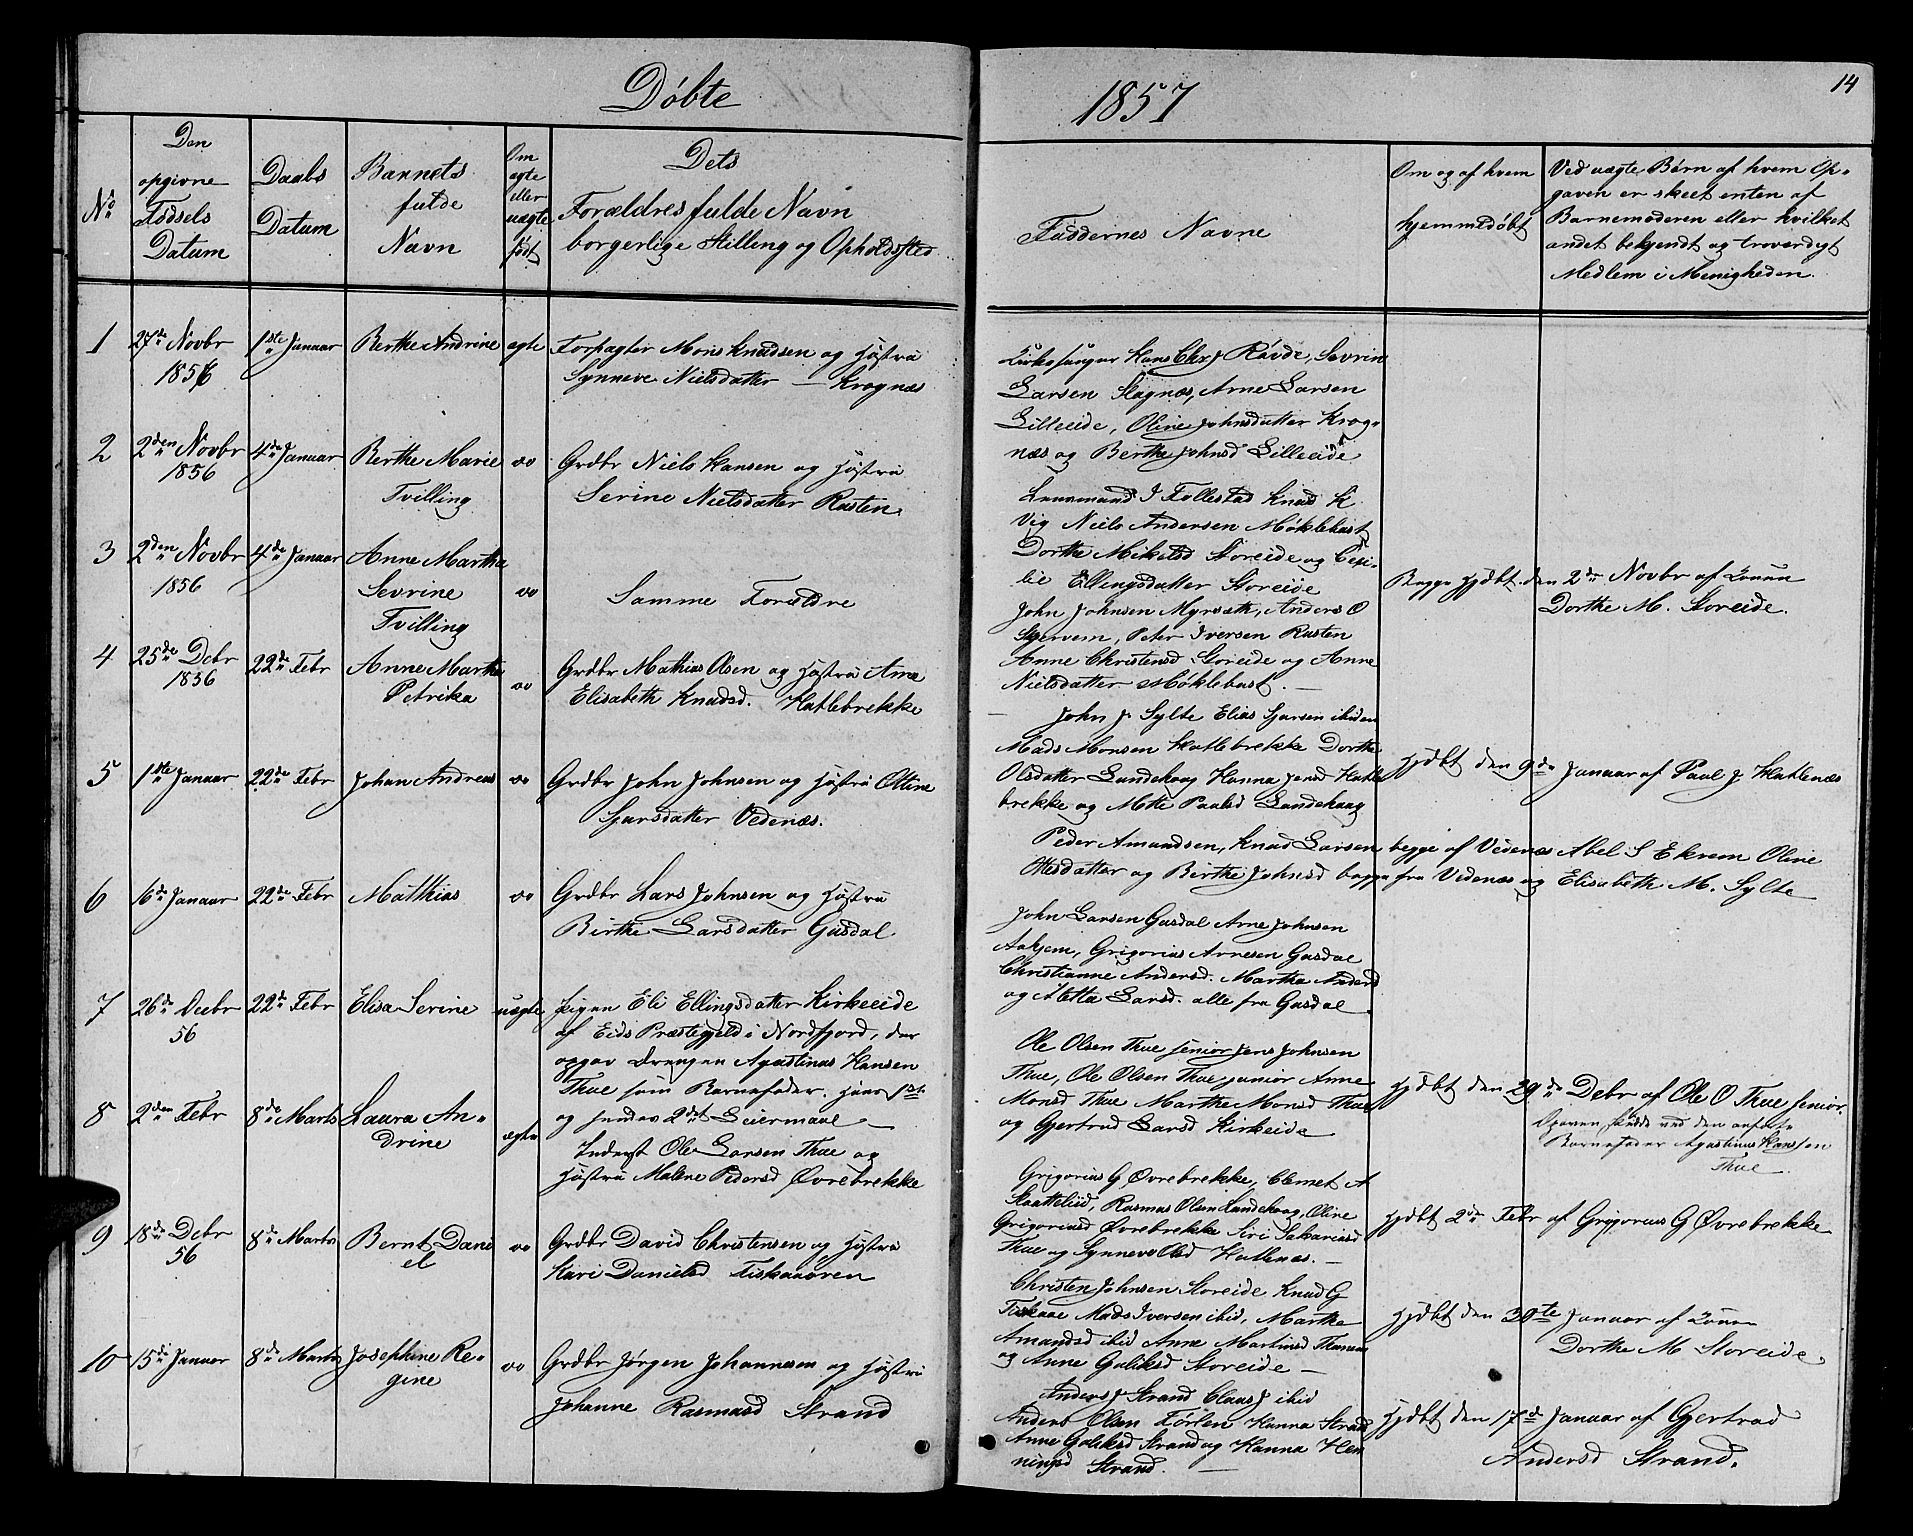 Døbte
1857
14
No
Den
opgivne
Fødsels
Datum
Daabs
Datum
Barnets
fulde
Navn
Om
ægte
eller
uægte
født
Dets
Forældres fulde Navn
borgerlige Stilling og Opholdssted
Faddernes Navne
Om og af hvem
hjemmedøbt
Ved uægte Børn af hvem Op-
gaven er skeet enten af
Barnemoderen eller hvilket
andet bekjendt og troværdigt
Medlem i Menigheden.
1
27de Novbr
1856
1ste Januar
Berthe Andrine
ægte
Forpagter Mons Knudsen og Hustru
Synneve Nielsdatter — Kragnæs
Kirkesanger Hans Chr J Røvde, Sevrin
Larsen Slagnæs, Arne Larsen
Lilleeide, Oline Johnsdatter Krag-
næs og Berthe Johnsd Lilleeide
2
2den Novbr
1856
4de Januar
Berthe Marie
Tvilling
do
Grdbr Niels Hansen og Hustru
Serine Nielsdatter Rusten.
Lensmand I Follestad Knud K
Vig Niels Andersen Møklebust
Dorthe Mikelsd Storeide og Cesi-
lie Ellingsdatter Storeide
3
2den Novbr
1856
4de Januar
Anne Martha
Sevrine
Tvilling
do
Samme Forældre
John Johnsen Myrsæth, Anders O
Skjervem, Peter Iversen Rusten
Anne Christensd Storeide og Anne
Nielsdatter Møklebust. —
Begge hjdbt. den 2den Novbr af Konen
Dorthe M. Storeide.
4
25de Debr
1856
22de Febr
Anne Marthe
Petrika
do
Grdbr Mathias Olsen og Hustru Ane
Elisabeth Knudsd. Hatlebrekke
John J Sylte Elias Sjursen ibiden
Mads Monsen Hatlebrekke Dorthe
Olsdatter Landehaag Hanna Jensd Hatle
brekke og Mette Paulsd Landehaag
hjdbt den 9de Januar af Paul J. Hatlenæs
5
1ste Januar
22de Febr
Johan Andreas
do
Grdbr John Johnsen og Hustru Oline
Sjursdatter Vedenæs.
Peder Amundsen, Knud Larsen begge af Vedenæs Abel S Ekrem Oline
Ottesdatter og Birthe Johnsd begge fra Vedenæs og Elisabeth M. Sylte
6
6de Januar
22de Febr
Mathias
do
Grdbr Lars Johnsen og Hustru
Birthe Larsdatter Gusdal
John Larsen Gusdal Arne Johnsen
Aahjem, Grigorius Arnesen Gusdal
Christianne Andersd. Martha Andersd
og Metta Larsd. alle fra Gusdal
7
26de Decbr
56
22de Febr
Elisa Serine
uægte
Pigen Eli Ellingsdatter Kirkeeide
af Eids Præstegjeld i Nordfjord, der
opgav Drengen Agustinus Hansen
Thue som Barnefader. Hans 1ste
og hendes 2det Leiermaal —
Ole Olsen Thue senior Jens Johnsen
Thue, Ole Olsen Thue junior Anne
Monsd Thue Marthe Monsd Thue
og Gjertrud Larsd Kirkeide
hjdbt den 29de Debr af Ole O Thue senior.
Opgaven skede ved den anførte
Barnefader Agustinus Hanssen
Thue
8
2den Febr
8de Marts
Laura An-
drine
ægte
Inderst Ole Larsen Thue og
Hustru Malene Pedersd Øvrebrekke
Grigorius G Øvrebrekke, Clemet A
Skaatteliid, Rasmus Olsen Landehaag, Oline
Grigoriusd Øvrebrekke Siri Sakariasd
Thue og Synneve Olsd Hatlenæs. —
hjdbt 2de Febr af Grigorius G Øvrebrekke
9
18de Debr
56
8de Marts
Bernt Dani
el
do
Grdbr David Christensen og Hustru
Kari Danielsd Fiskaaøren
Christen Johnsen Storeide Knud G
Fiskaae Mads Iversen ibid, Marthe
Amundsd ibid Anne Martinsd
og Anne Guliksd Storeide —
hjdbt den 30te Januar af Konen
Dorthe M Storeide
10
15de Januar
8de Marts
Josephine Re-
gine
do
Grdbr Jørgen Johannesen og Hustru
Johanne Rasmusd Strand
Anders J Strand Claus J ibid
Anders Olsen Førlen Hanna Strand
Anne Guliksd Strand og Hanna Hen
ningsd Strand. —
hjdbt den 17de Januar af Gjertrud
Andersd Strand.